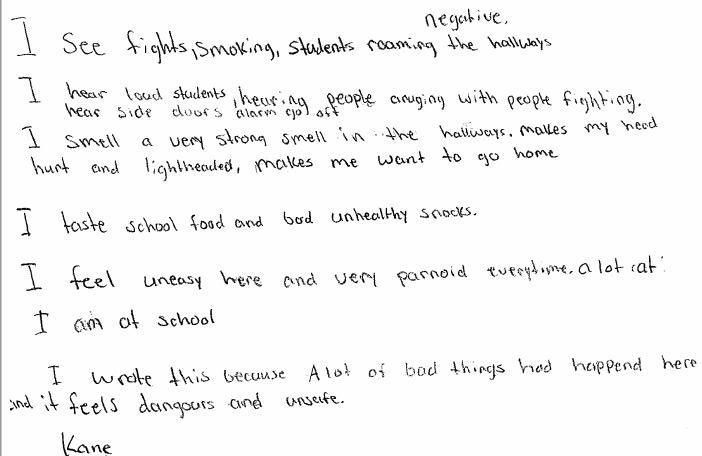 negative.
I See fights, smoking, students roaming the hallways
I hear loud students, hearing people aruging with people fighting.
hear side doors alarm go off
I smell a very strong smell in the hallways. makes my head
hurt and lightheaded, makes me want to go home
I taste school food and bad unhealthy snacks.
I feel uneasy here and very parnoid everytime. a lot
I am at school
I wrote this because A lot of bad things had happend here
and it feels dangours and unsafe.
Kane